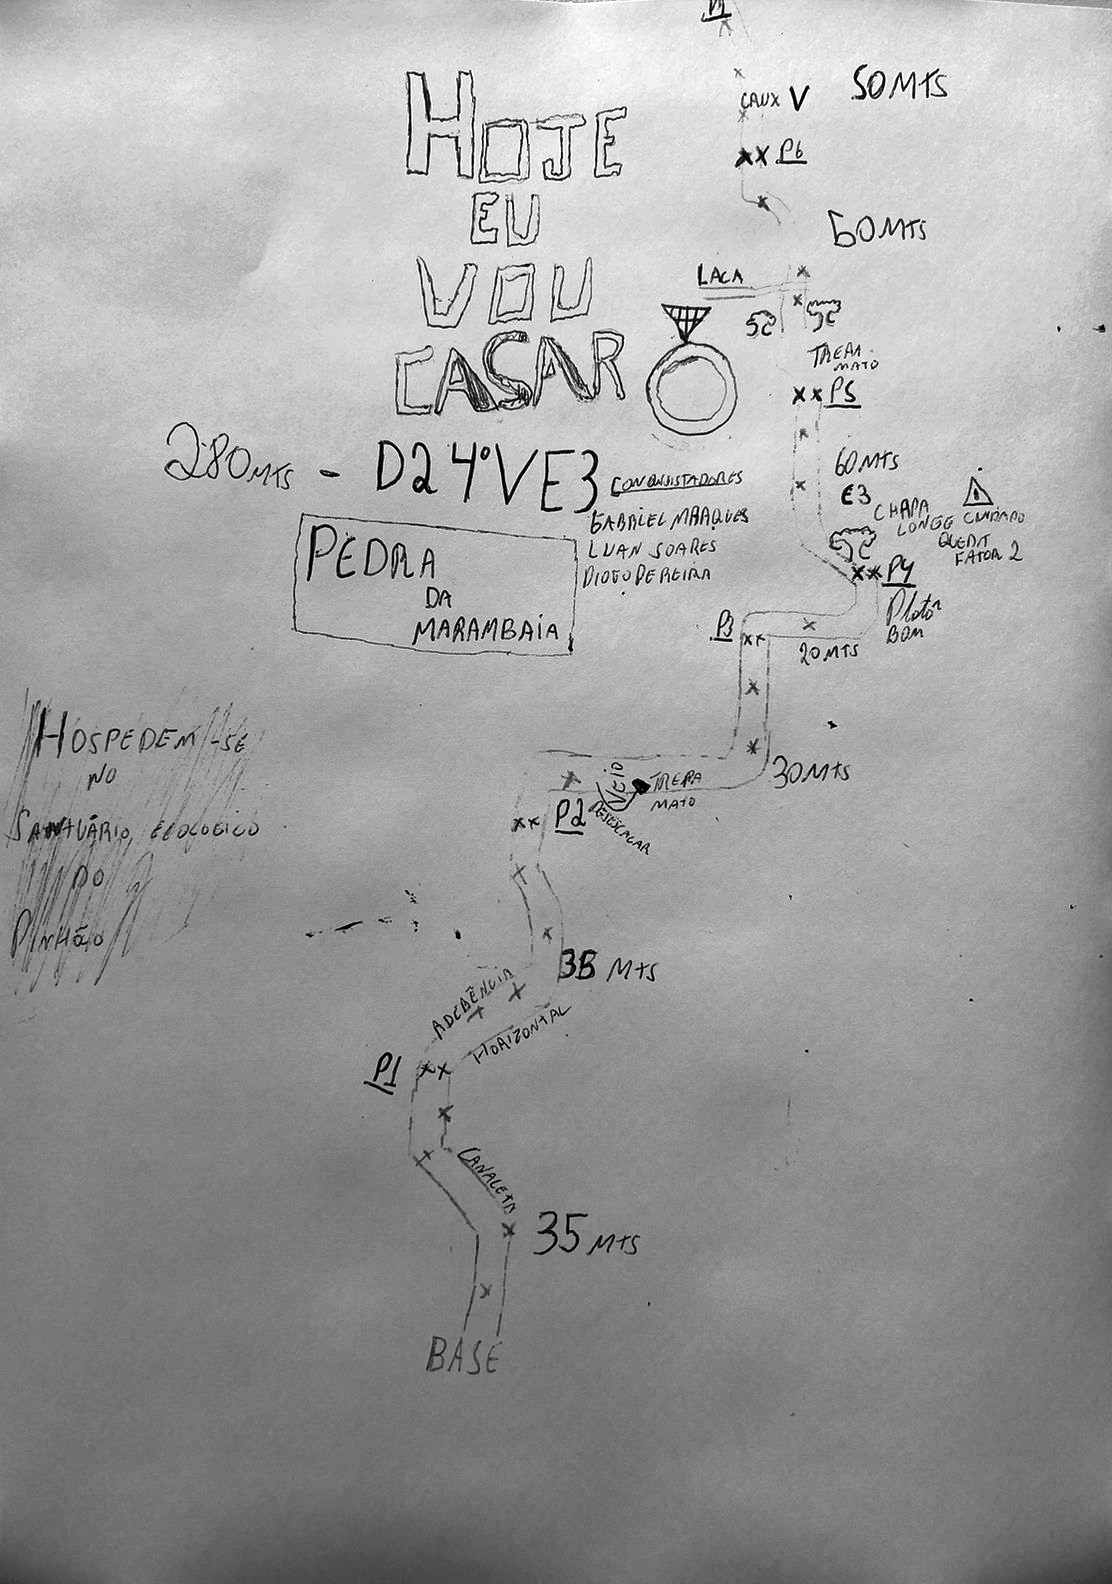 HOJE
EU
VOU
CASAR
280 MTS - D2 4º V E3
CONQUISTADORES
GABRIEL MARQUES
LUAN SOARES
DIOGO PEREIRA
PEDRA
DA
MARAMBAIA
HOSPEDEM-SE
NO
SANTUÁRIO ECOLOGICO
DO
PINHÃO
50 MTS
CRUX V
P6
60 MTS
LACA
TREPA
MATO
P5
60 MTS
E3
CHAPA
LONGE CUIDADO
QUEDA
FATOR 2
P4
Platô
BOM
P3
20 MTS
30 MTS
VEIO
TREPA
MATO
P2
DESESCALAR
35 MTS
ADERÊNCIA
HORIZONTAL
P1
CANALETA
35 MTS
BASE